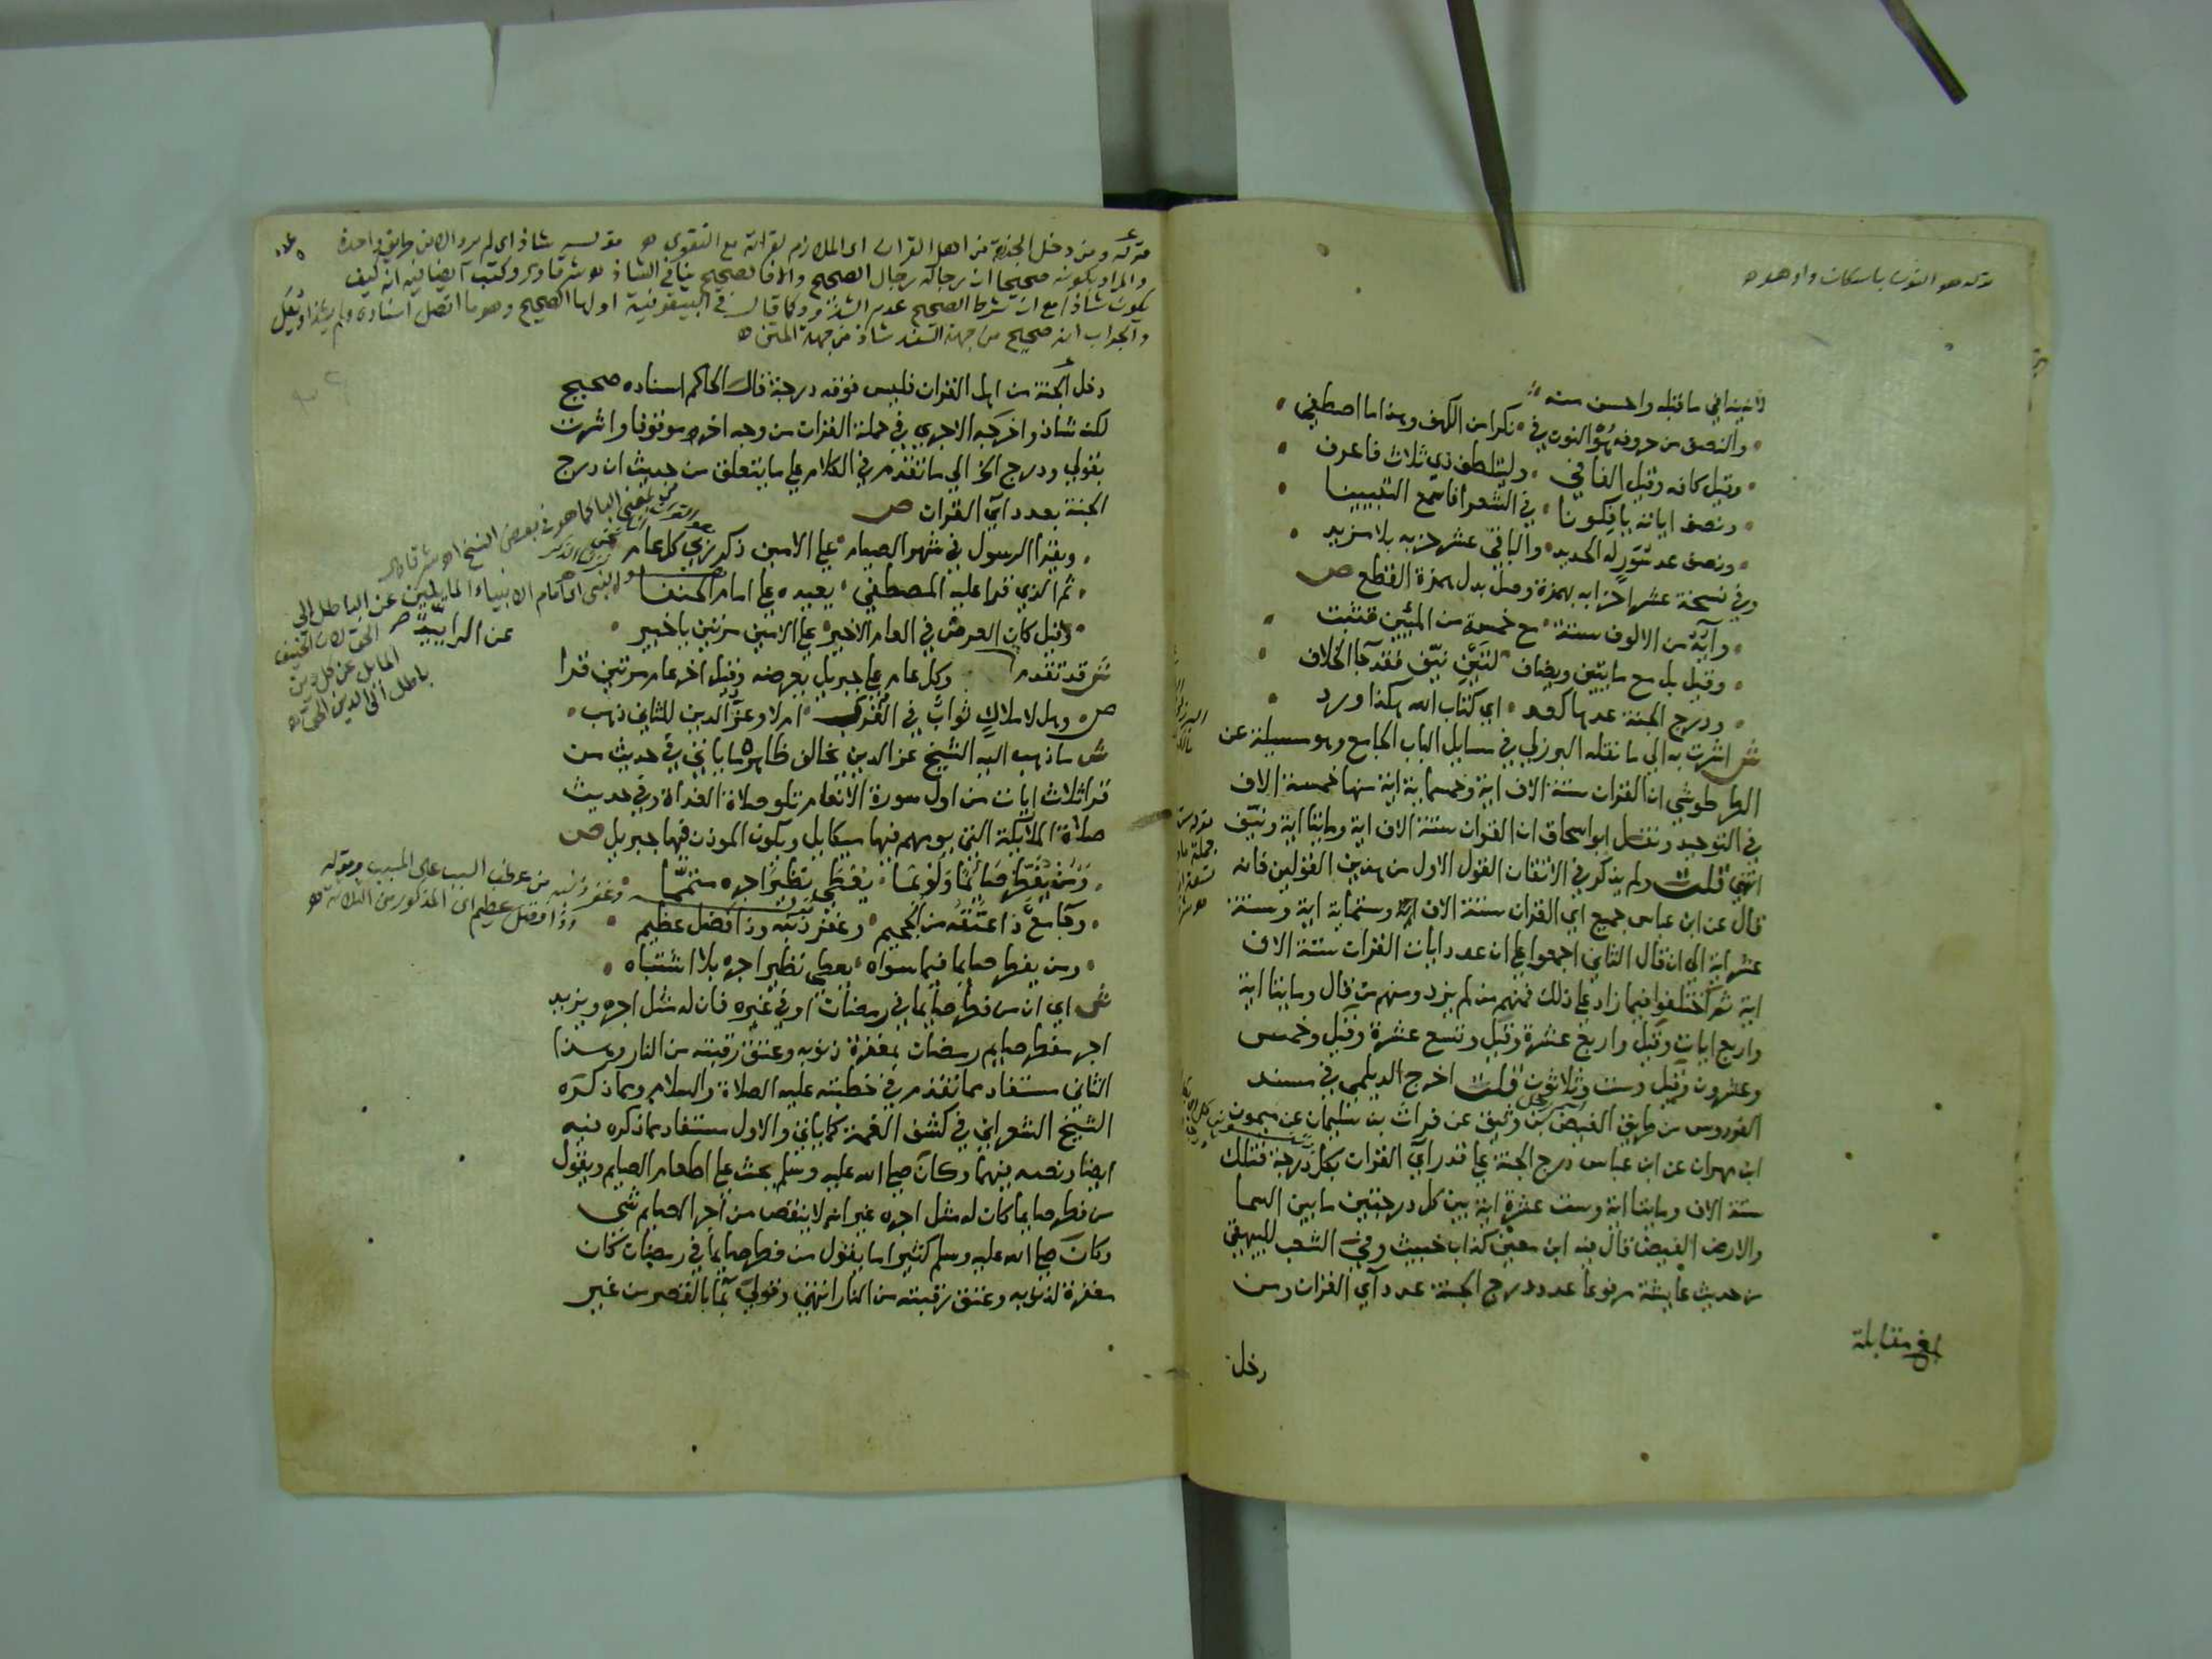 قوله هو النون باسكان واو هو اه
لانه ينافي ما قبله واحسن منه
والنصف من حروفه هُوْ النون في نكرا من الكهف وهذا ما اصطفي
وقيل كافه وقيل الفا في وليتلطف ذي ثلاث فاعرف
ونصف اياته يافكونا في الشعرا فاسمع التبيينا
ونصف عد سُوَرِه الحديد والباقي عشر حزبه بلا مزيد
وفي نسخة عشر احزابه بهمزة وصل بدل همزة القطع ص
وآيُهُ من الالوف ستة مع خمسة من المئين قد ثبت
وقيل بل مع مايتين ويضاف لتين نيّف فقد جا الخلاف
ودرج الجنة عدها كعد اي كتاب الله هكذا ورد
ش اشرت به الي ما نقله البرزلي في مسايل الباب الجامع وهو مسيلة عن
الطرطوشي ان القران ستة الاف اية وخمسماية اية منها خمسة الاف
في التوحيد ونقل ابو اسحاق ان القران ستة الاف اية ومايتا اية ونيّف
انتهي قلت ولم يذكر في الاتقان القول الاول من هذين القولين فانه
قال عن ابن عباس جميع اي القران ستة الاف اية وستماية اية وستة
عشر اية الي ان قال الثاني اجمعوا علي ان عدد ايات القران ستة الاف
اية ثم اختلفوا فيما زاد علي ذلك فمنهم من لم يزد ومنهم من قال ومايتا اية
واربع ايات وقيل واربع عشرة وقيل وتسع عشرة وقيل وخمس
وعشرون وقيل وست وثلاثون قلت اخرج الديلمي في مسند
الفردوس من طريق الفيض بن وثيق عن فرات بن سليمان عن ميمون
ابن مهران عن ابن عباس درج الجنة علي قدر آي القران بكل درجة فتلك
ستة الاف ومايتا اية وست عشرة اية بين كل درجتين ما بين السما
والارض الفيض قال فيه ابن معين كذاب خبيث وفي الشعب للبيهقي
من حديث عايشة مرفوعا عدد درج الجنة عدد آي القران ومن
بلغ مقابلة
دخل
قوله ومن دخل الجنة من اهل القران اي الملازم لقراته مع التقوي اه قوله شاذ اي لم يرو الا من طريق واحدة
والمراد بكونه صحيحا ان رجاله رجال الصحيح والا فالصحيح ينافي الشاذ اه شرقاوي وكتب ايضا فيه انه كيف
يكون شاذا مع ان شرط الصحيح عدم الشذوذ كما قال في البيقونية اولها الصحيح وهو ما اتصل اسناده ولم يشذ او يعل
والجواب انه صحيح من جهة السند شاذ من جهة المتن اه
دخل الجنة من اهل القران فليس فوقه درجة قال الحاكم اسناده صحيح
لكنه شاذ واخرجه الاجري في حملة القران من وجه اخر موقوفا واشرت
بقولي ودرج الخ الي ما تقدم في الكلام علي ما يتعلق من حديث ان درج
الجنة بعدد آي القران ص
ويقرا الرسول في شهر الصيام علي الامين ذكر ربي كل عام
ثم الذي قرا عليه المصطفي يعيده علي امام الحنفا
وقيل كان العرض في العام الاخير علي الامين مرتين يا خبير
ش قد تقدم وكل عام علي جبريل يعرضه وقيل اخر عام مرتين قرا
ص وهل لاملاكٍ ثوابٌ في القُرَب ام لا وعزّ الدين للثاني ذهب
ش ما ذهب اليه الشيخ عز الدين يخالف ظاهره ما ياتي في حديث من
قرا ثلاث ايات من اول سورة الانعام تلو صلاة الغداة وفي حديث
صلاة الملائكة التي يومهم فيها ميكايل ويكون الموذن فيها جبريل ص
وَمَن يُفَطِّر صَائمًا وَلَوْ بِمَا يُعطَي نظيرَ اجره متمّما
وجامع ذا عتقه من الجحيم وغفر ذنبه وذا فضل عظيم
ومن يفطر صايما فيما سواه يعطي نظير اجره بلا اشتباه
ش اي ان من فطر صايما في رمضان او في غيره فان له مثل اجره ويزيد
اجر مفطر صايم رمضان بمغفرة ذنوبه وعتق رقبته من النار وهذا
الثاني مستفاد مما تقدم في خطبته عليه الصلاة والسلام ومما ذكره
الشيخ الشعراني في كشف الغمة كما ياتي والاول مستفاد مما ذكره فيه
ايضا ونصه فيهما وكان صلي الله عليه وسلم يحث علي اطعام الصايم ويقول
من فطر صايما كان له مثل اجره غير انه لا ينقص من أجر الصايم شي
وكان صلي الله عليه وسلم كثيرا ما يقول من فطر صايما في رمضان كان
مغفرة لذنوبه وعتق رقبته من النار انتهي وقولي بما بالقصر من غير
بمعني البا كما هو في بعض النسخ اه شرقاوي
امام الانبياء المايلين عن الباطل الي
الحق لان الحنيف
المايل عن كل دين
باطل الي الدين الحق اه
وغفر ذنبه من عطف السبب علي المسبب وقوله
وذا فضل عظيم اي المذكور من الثلاثة اه